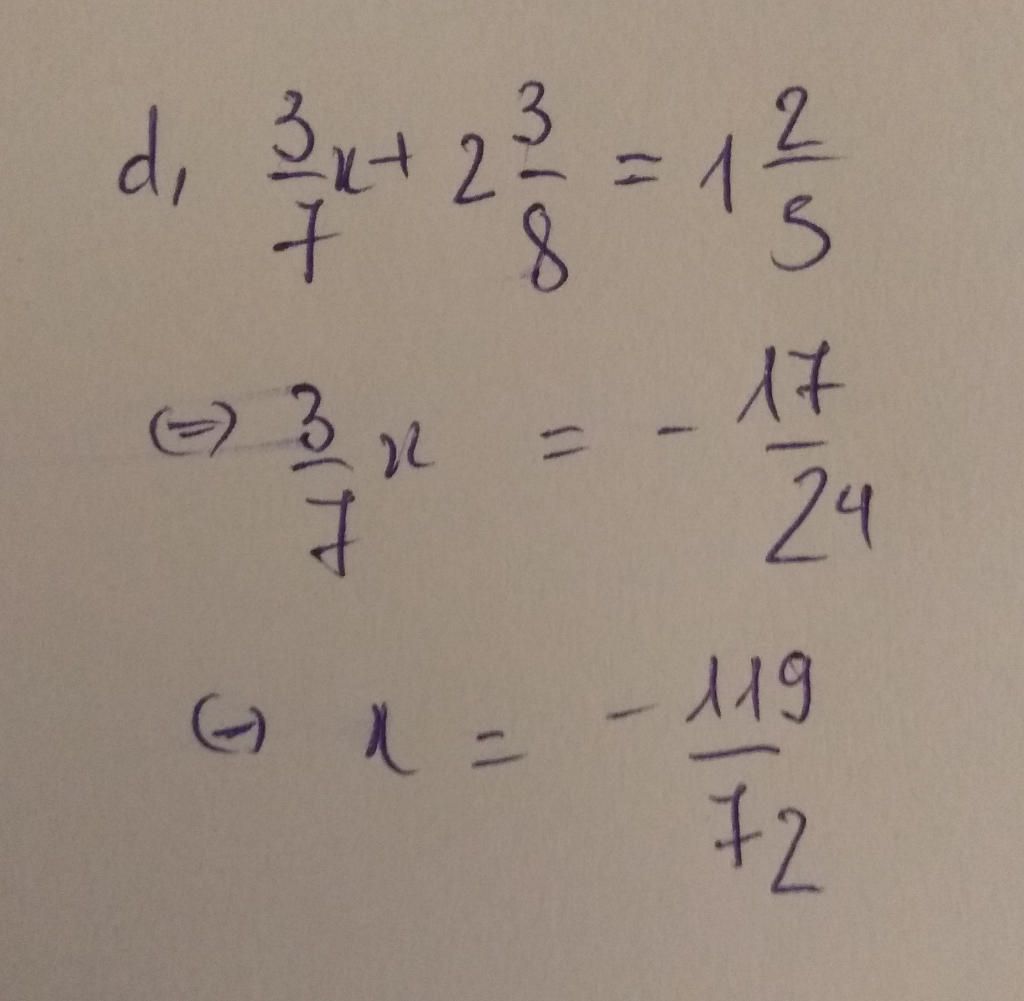 d, 3/7 x + 2 3/8 = 1 2/5
(=) 3/7 x = - 17/24
(-) x = - 119/72